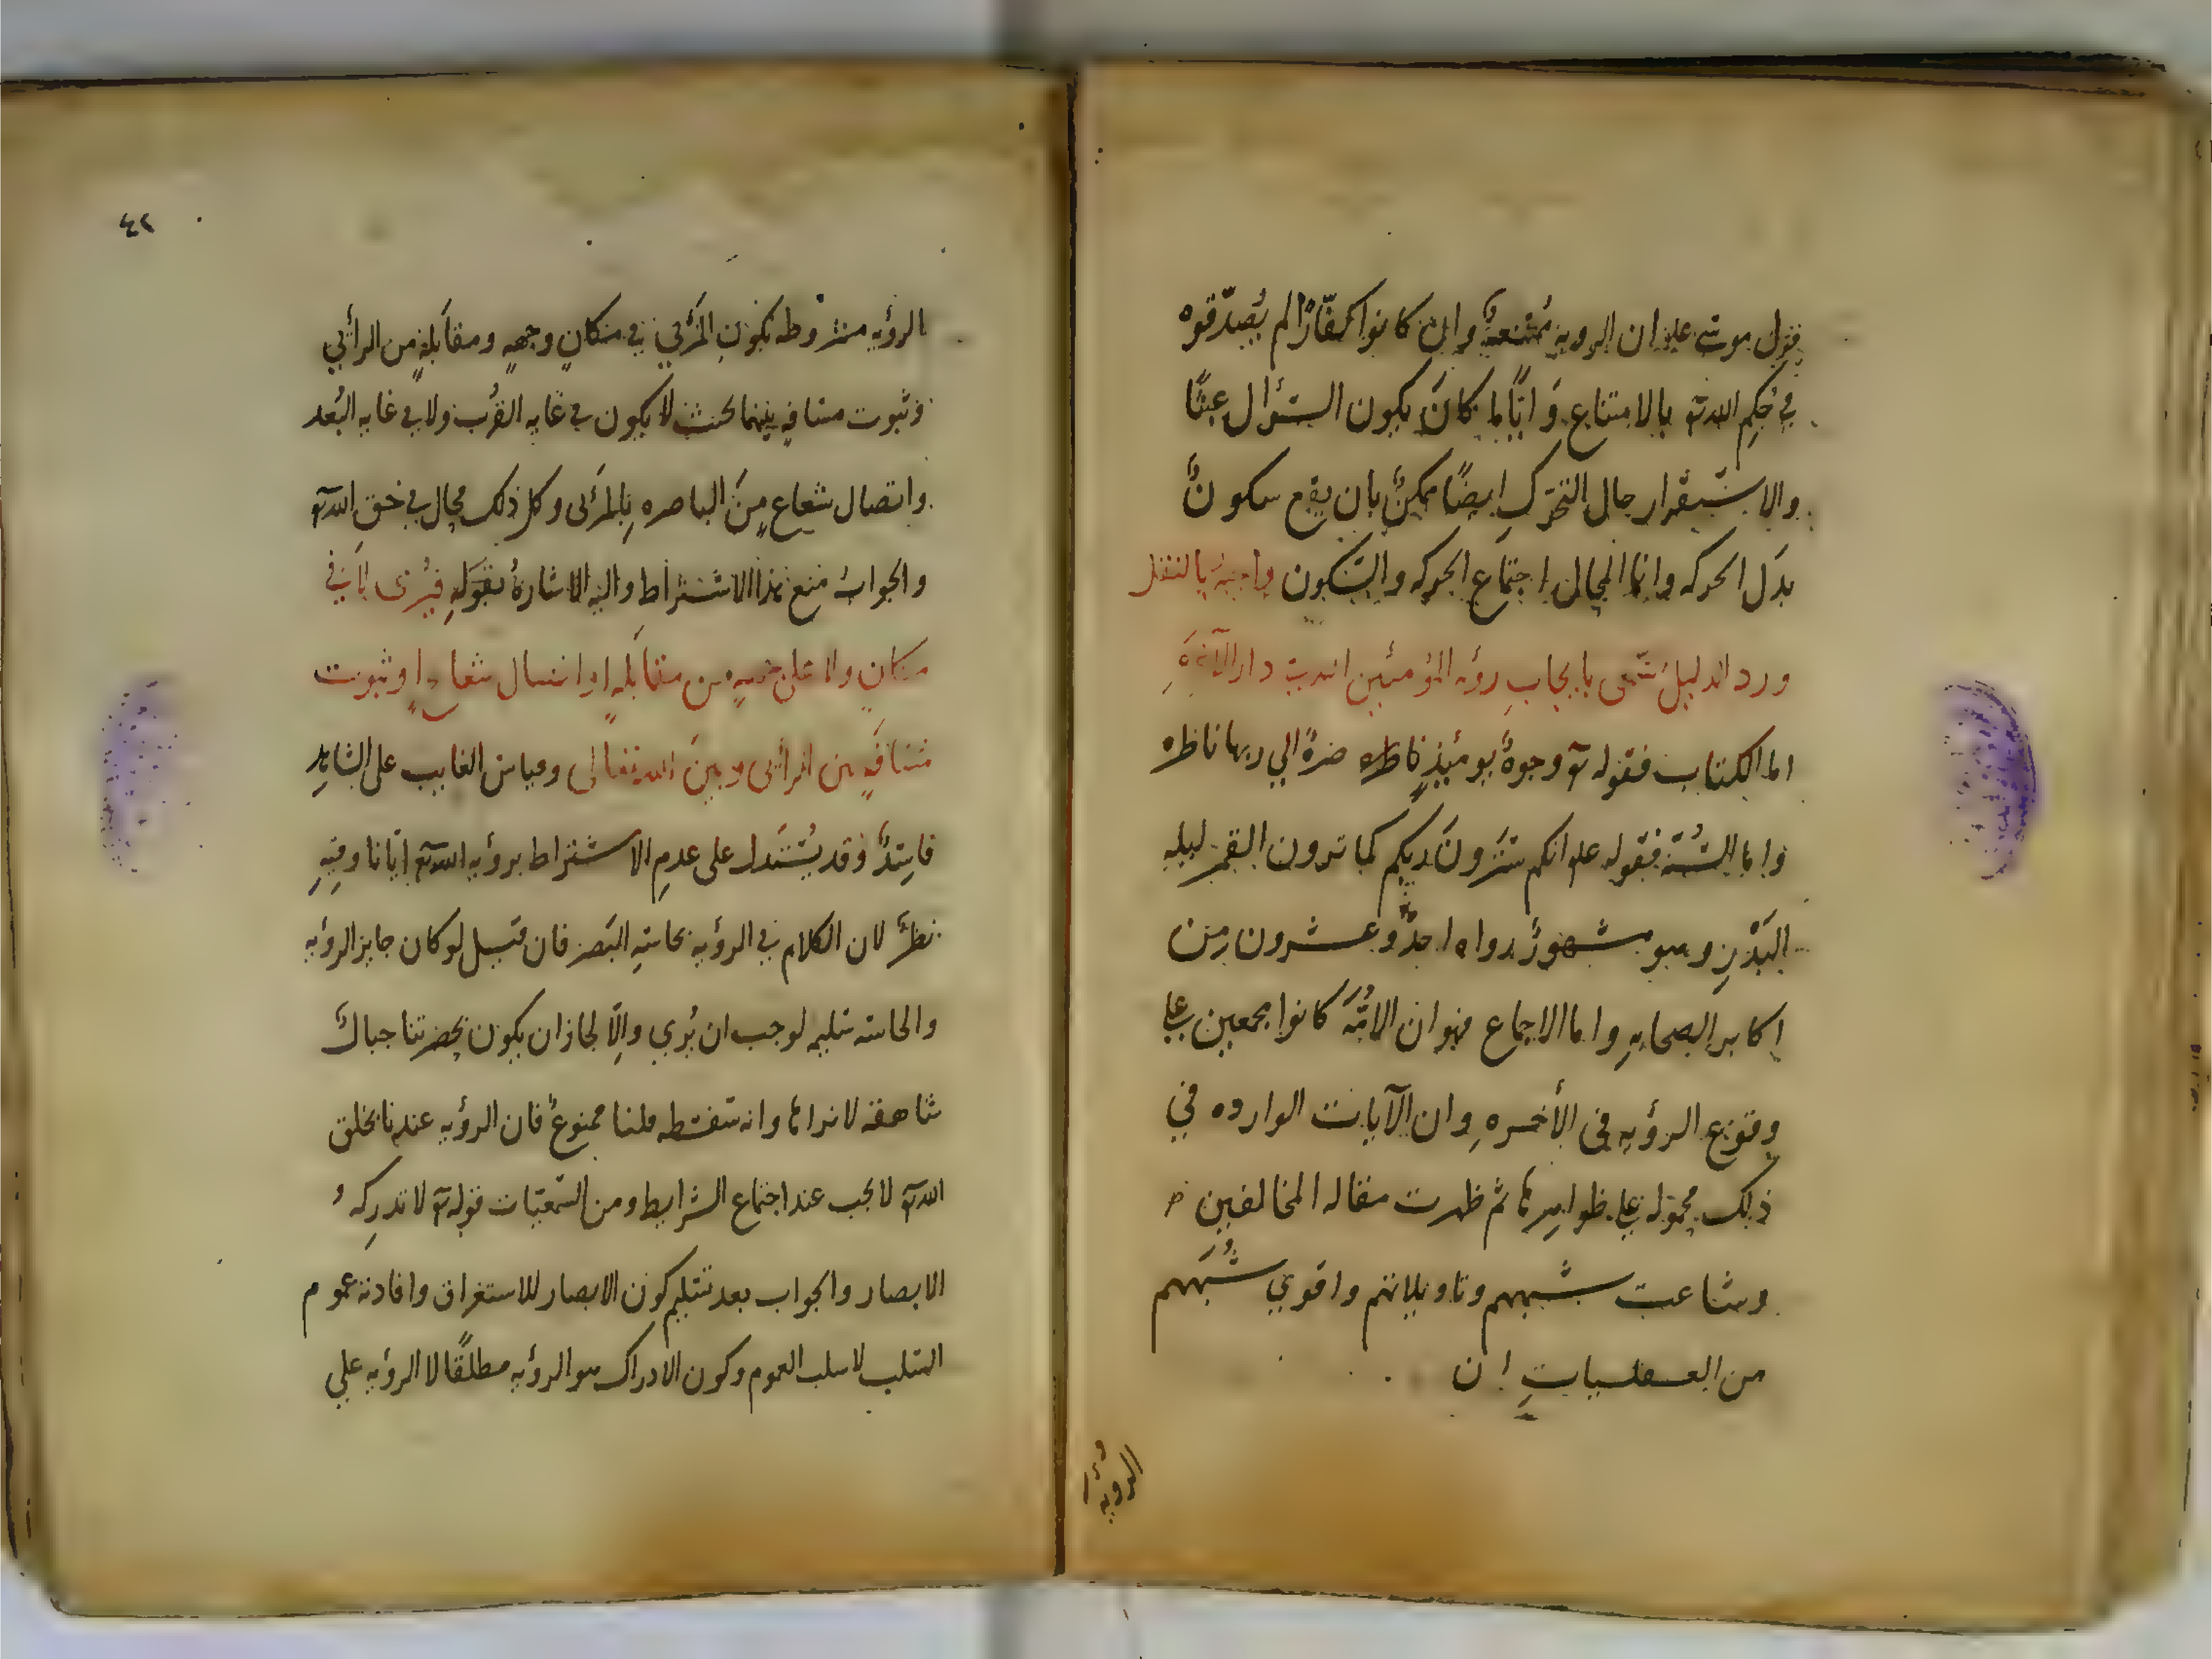 قول موسى علم ان الروية ممتنعة وان كانوا كفّارًا لم يُصدّقوه
في حُكم الله تع بالامتناع وَايًّا ما كانَ يكون السؤال عبثًا
والاستقرار حال التحرّكِ ايضًا ممكنٌ بان يقع سكونٌ
بدَل الحركه وانما المحال اجتماع الحركه والسّكون واجبة بالنقل
ورد الدليل السّمعى بايجابِ رؤيه المؤمنين الله في دار الآخرةِ
اما الكتاب فقوله تع وجوهٌ يومئذٍ ناظره ضرةٌ الي ربها ناظره
واما السُّنّة فقوله علم انكم سترونَ ربكم كما ترون القمر ليله
البَدْرِ وهو مشهورٌ رواه احدٌ وعشرون من
اكابر الصحابهِ واما الاجماع فهو ان الامّةَ كانوا مجمعين على
وقوع الرؤيه فى الأخرهِ وان الآيات الوارده في
ذلك محموله على ظواهرها ثم ظهرت مقاله المخالفين
وشاعت شبههم وتاويلاتهم واقوي شُبَههم
من العقليات ان
الرويه
٤٢
الرؤيه مشروطه بكون المَرْئي في مكانٍ وجهةٍ ومقابلةٍ من الرائي
وثبوت مسافه بينهما بحيث لا يكون في غايه القُرب ولا في غايه البُعد
واتصال شعاعٍ منَ الباصره بِالمرئى وكل ذلك محال في حق الله تع
والجوابُ منع هذا الاشتراط واليه الاشارةُ بقَوله فيُرى لا في
مكانٍ ولا على جهةٍ من مقابلهٍ او اتصال شعاعٍ او ثبوت
مسافةٍ بين الرائى وبين الله تعالى وقياس الغايب على الشاهِد
فاسِدٌ وقد يُستَدل على عدمِ الاشتراط برؤيه الله تع ايّانا وفيهِ
نظرٌ لان الكلام في الرؤيه بحاسّهِ البصَر فان قيل لو كان جايز الرؤيه
والحاسّه سَليمه لوجب ان يُري والّا لجاز ان يكون بحضرتنا جبالٌ
شاهقه لا نراها وانه سفسطه قلنا ممنوعٌ فان الرؤيه عندنا بخلق
الله تع لا يجب عند اجتماع الشرايط ومن السّمعيّات قوله تع لا تدركهُ
الابصار والجواب بعد تسليم كون الابصار للاستغراق وافادته عموم
السّلب لا سلب العموم وكون الادراك هو الرؤيه مطلقًا لا الرؤيه علي